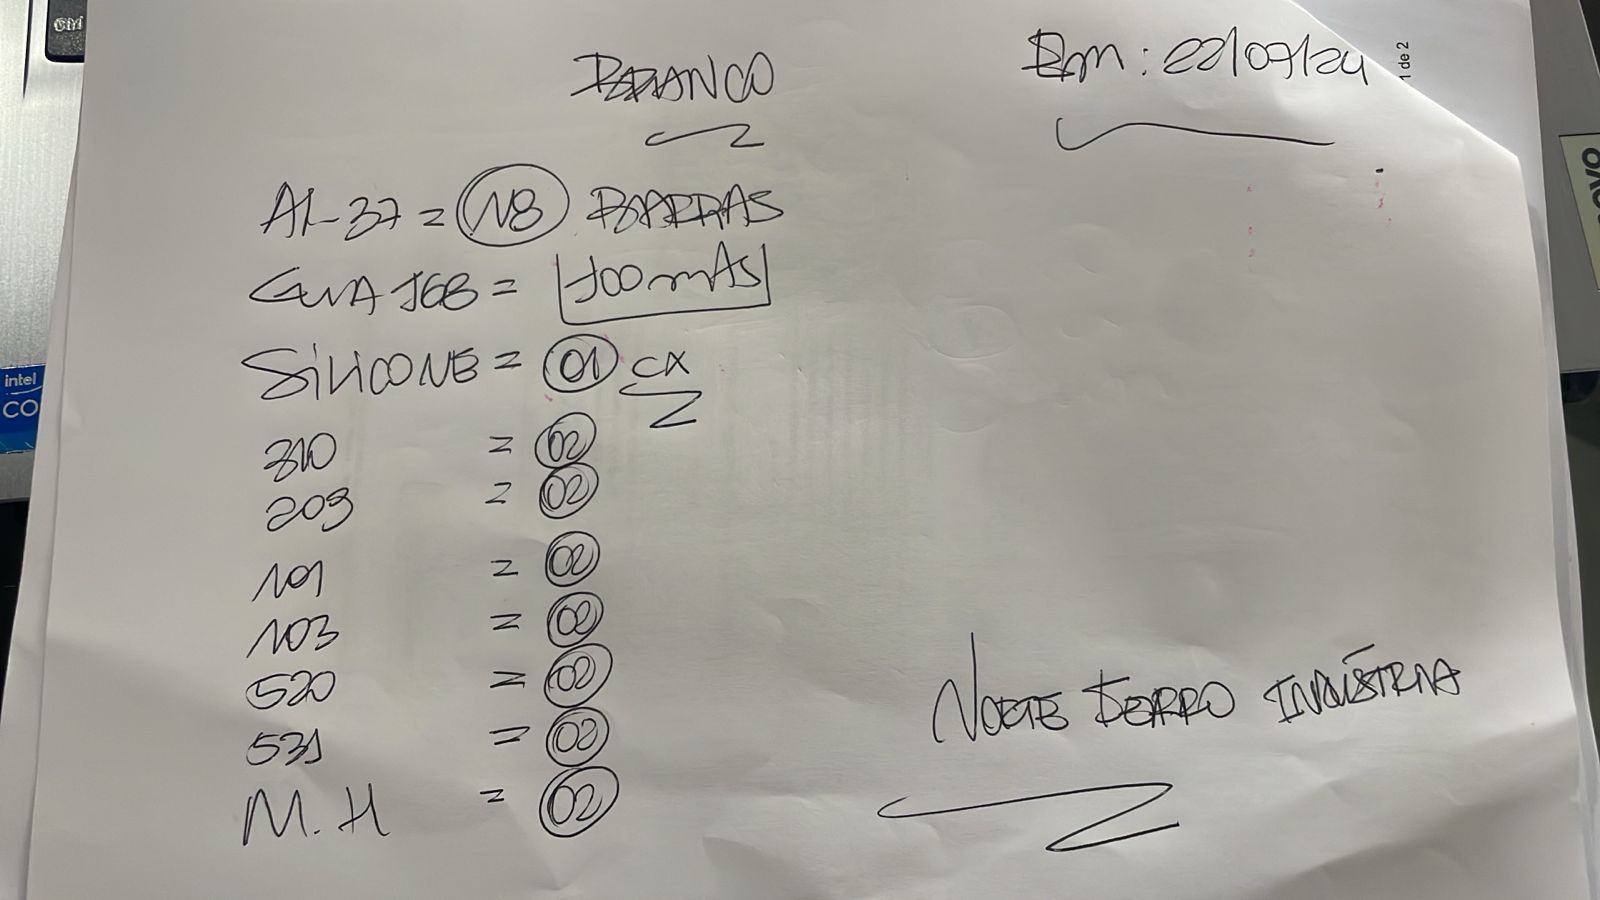 BRANCO
Em: 22/07/24
1 de 2
AL-37 = 18 BARRAS
GUIA 168 = 100 mts
SiLICONE = 01 CX
310 = 02
209 = 02
101 = 02
103 = 02
520 = 02
531 = 02
M.H = 02
NORTE FERRO INDÚSTRIA
intel
CO
Ctrl